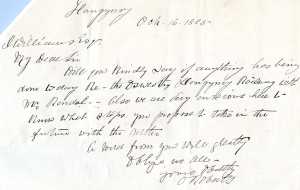 Llangynog
Oct. 16. 1885
Williams Esq.
My Dear Sir
Will you kindly say if anything has being
done today Re - the Oswestry Llangynog Railway with
Mr. - Also we are very anxious here to
know what steps you propose to take in the
future with the matter
A word from you will greatly
Oblige us all -
yours faithfully